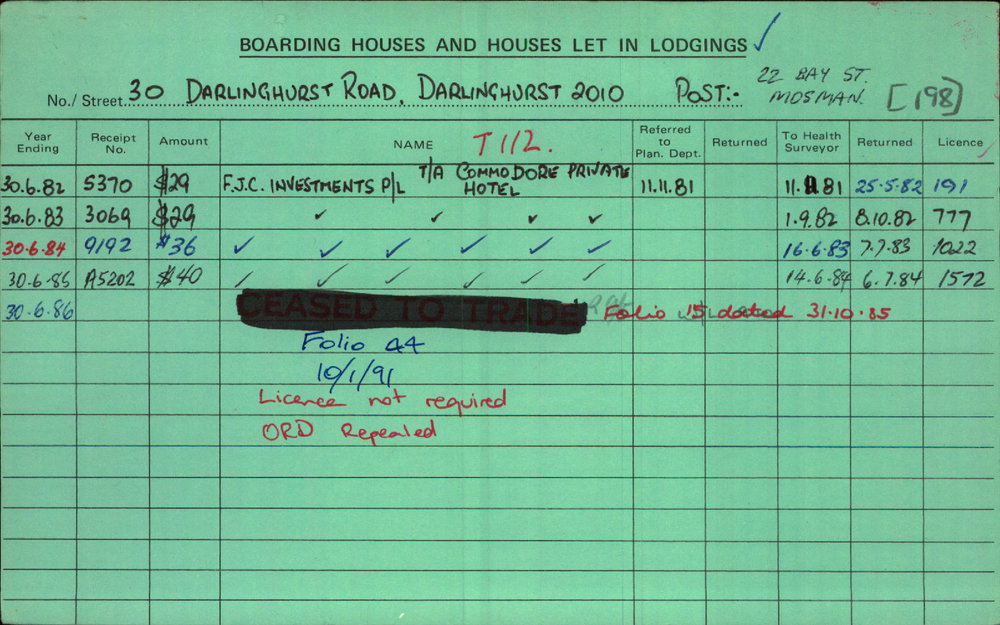 BOARDING HOUSES AND HOUSES LET IN LODGINGS ✓
22 BAY ST.
No./ Street. 30 DARLINGHURST ROAD, DARLINGHURST 2010 POST:- MOSMAN. [198]
Year Ending Receipt No. Amount NAME T112. Referred to Plan. Dept. Returned To Health Surveyor Returned Licence
30.6.82 5370 $29 F.J.C. INVESTMENTS P/L T/A COMMODORE PRIVATE HOTEL 11.11.81 11.11.81 25.5.82 191
30.6.83 3069 $29 ✓ ✓ ✓ ✓ 1.9.82 8.10.82 777
30.6.84 9192 $36 ✓ ✓ ✓ ✓ ✓ ✓ 16.6.83 7.7.83 1022
30.6.85 A5202 $40 ✓ ✓ ✓ ✓ ✓ ✓ 14.6.84 6.7.84 1572
30.6.86 CEASED TO TRADE Folio 15 dated 31.10.85
Folio 44
10/1/91
Licence not required
ORD Repealed